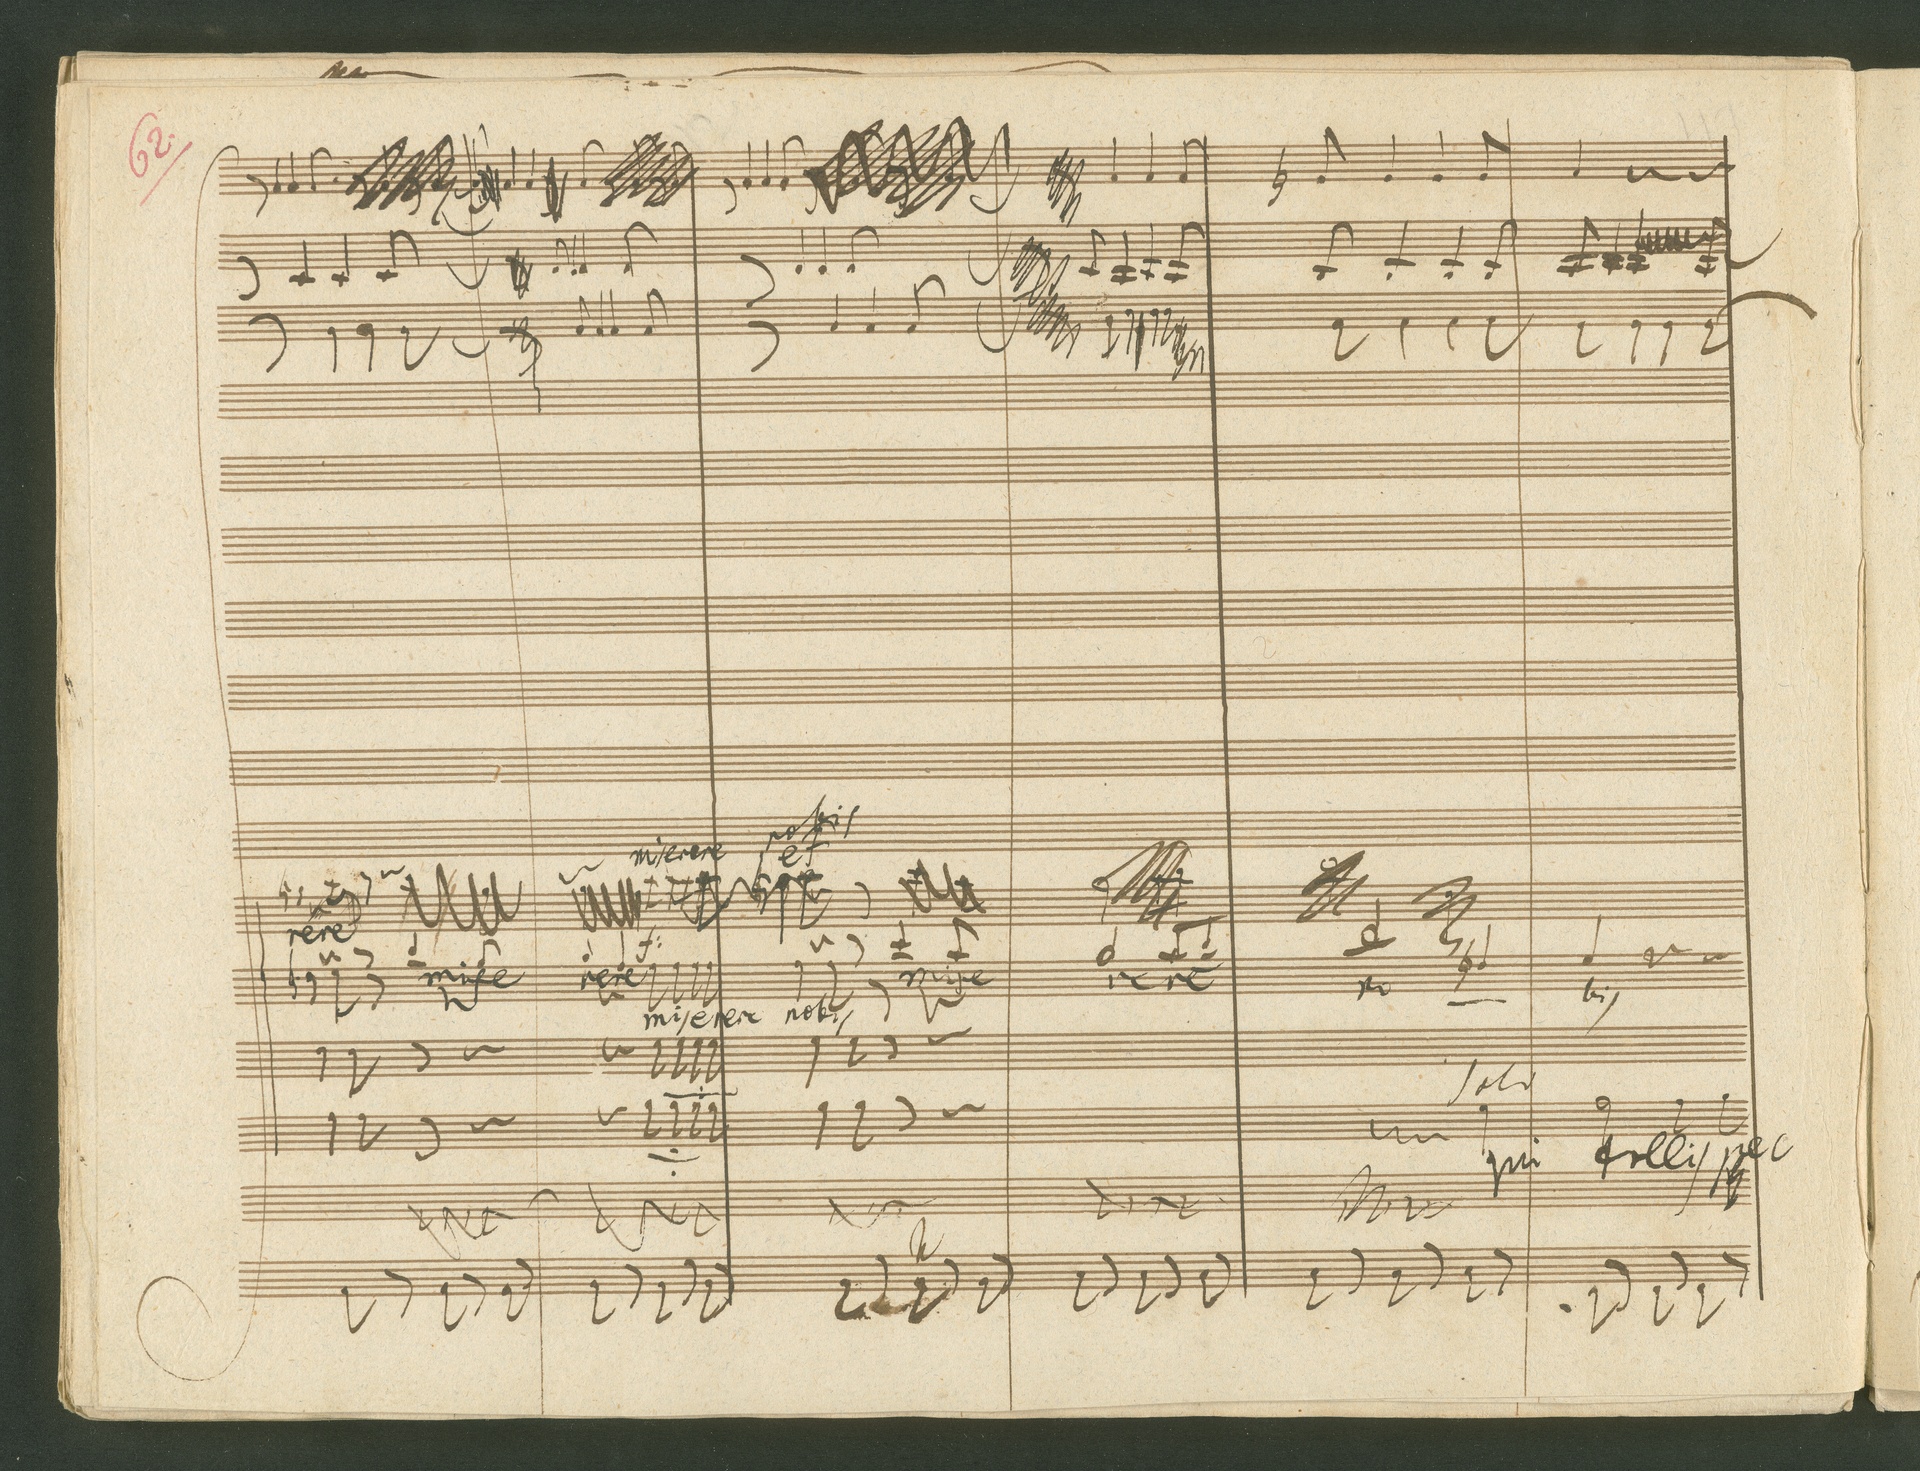 62.
nobis
miserere et
rere
f:
mise rere mise re re no bis
miserere nobis
Solo
qui tollis pec